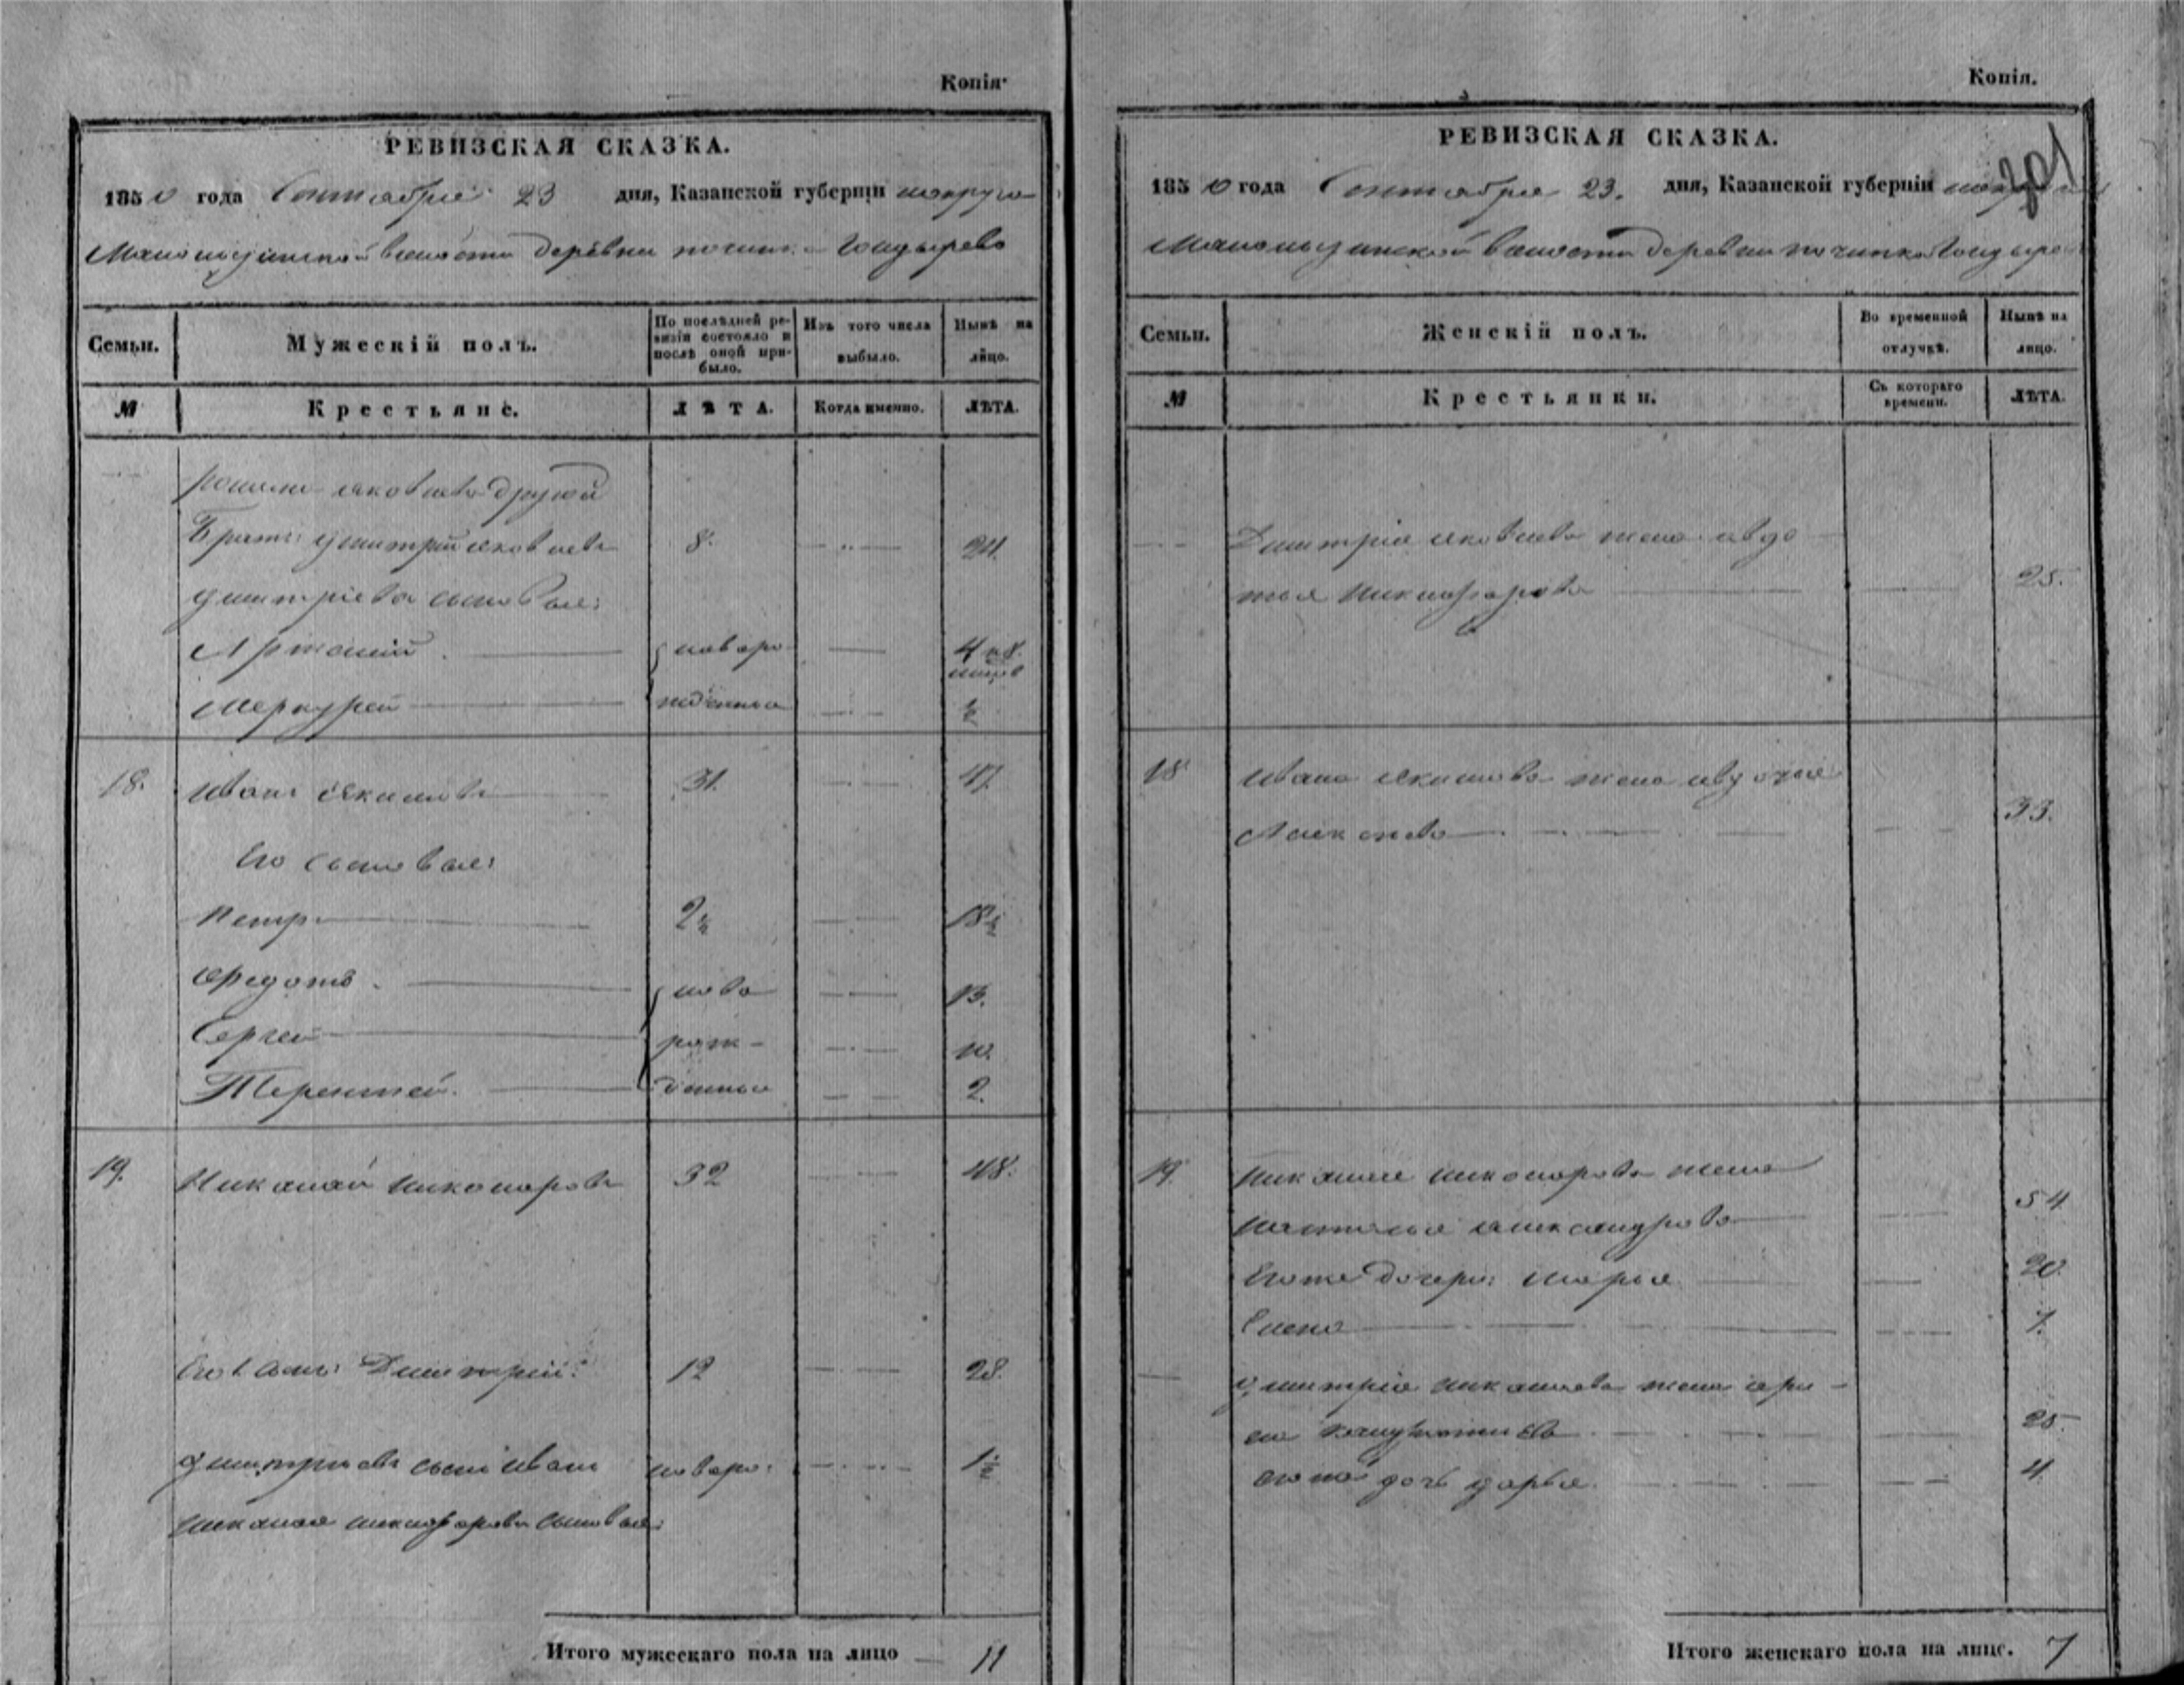 Копія
РЕВИЗСКАЯ СКАЗКА.
1850 года Сентября 23 дня, Казанской губерніи
волости деревни починка Гондырева
Семьи.
Мужескій полъ.
По послѣдней ревизіи состояло и послѣ оной прибыло.
Изъ того числа выбыло.
Нынѣ на лицо.
№
Крестьяне.
ЛѢТА.
Когда именно.
ЛѢТА.
Яковлева другой
Братъ Дмитрій Яковлевъ 8. 24.
Дмитріева сыновья:
новоро 4
Меркурей жденныя ½
18. Иванъ Якимовъ 31. 47.
Его сыновья:
Петръ 2½ 18½
Федотъ ново 13.
Сергей рож- 10.
Терентей. денныя 2.
19. Николай Никоноровъ 32 48.
Его сынъ Дмитрій: 12 28.
Дмитріевъ сынъ Иванъ новоро: 1½
Николая сыновья:
Итого мужескаго пола на лицо 11
Копія.
201
РЕВИЗСКАЯ СКАЗКА.
1850 года Сентября 23. дня, Казанской губерніи
волости деревни починка
Семьи.
Женскій полъ.
Во временной отлучкѣ.
Нынѣ на лицо.
№
Крестьянки.
Съ котораго времени.
ЛѢТА.
Дмитрія Яковлева жена Авдо
тья Никифорова 25.
18 Ивана Якимова жена
33.
19. Николая Никонорова жена
Наталья Александрова 54
Егоже дочери: Марья 20.
Елена 7.
Дмитрія Николаева жена Ири
на 25
его же дочь Дарья. 4.
Итого женскаго пола на лице. 7